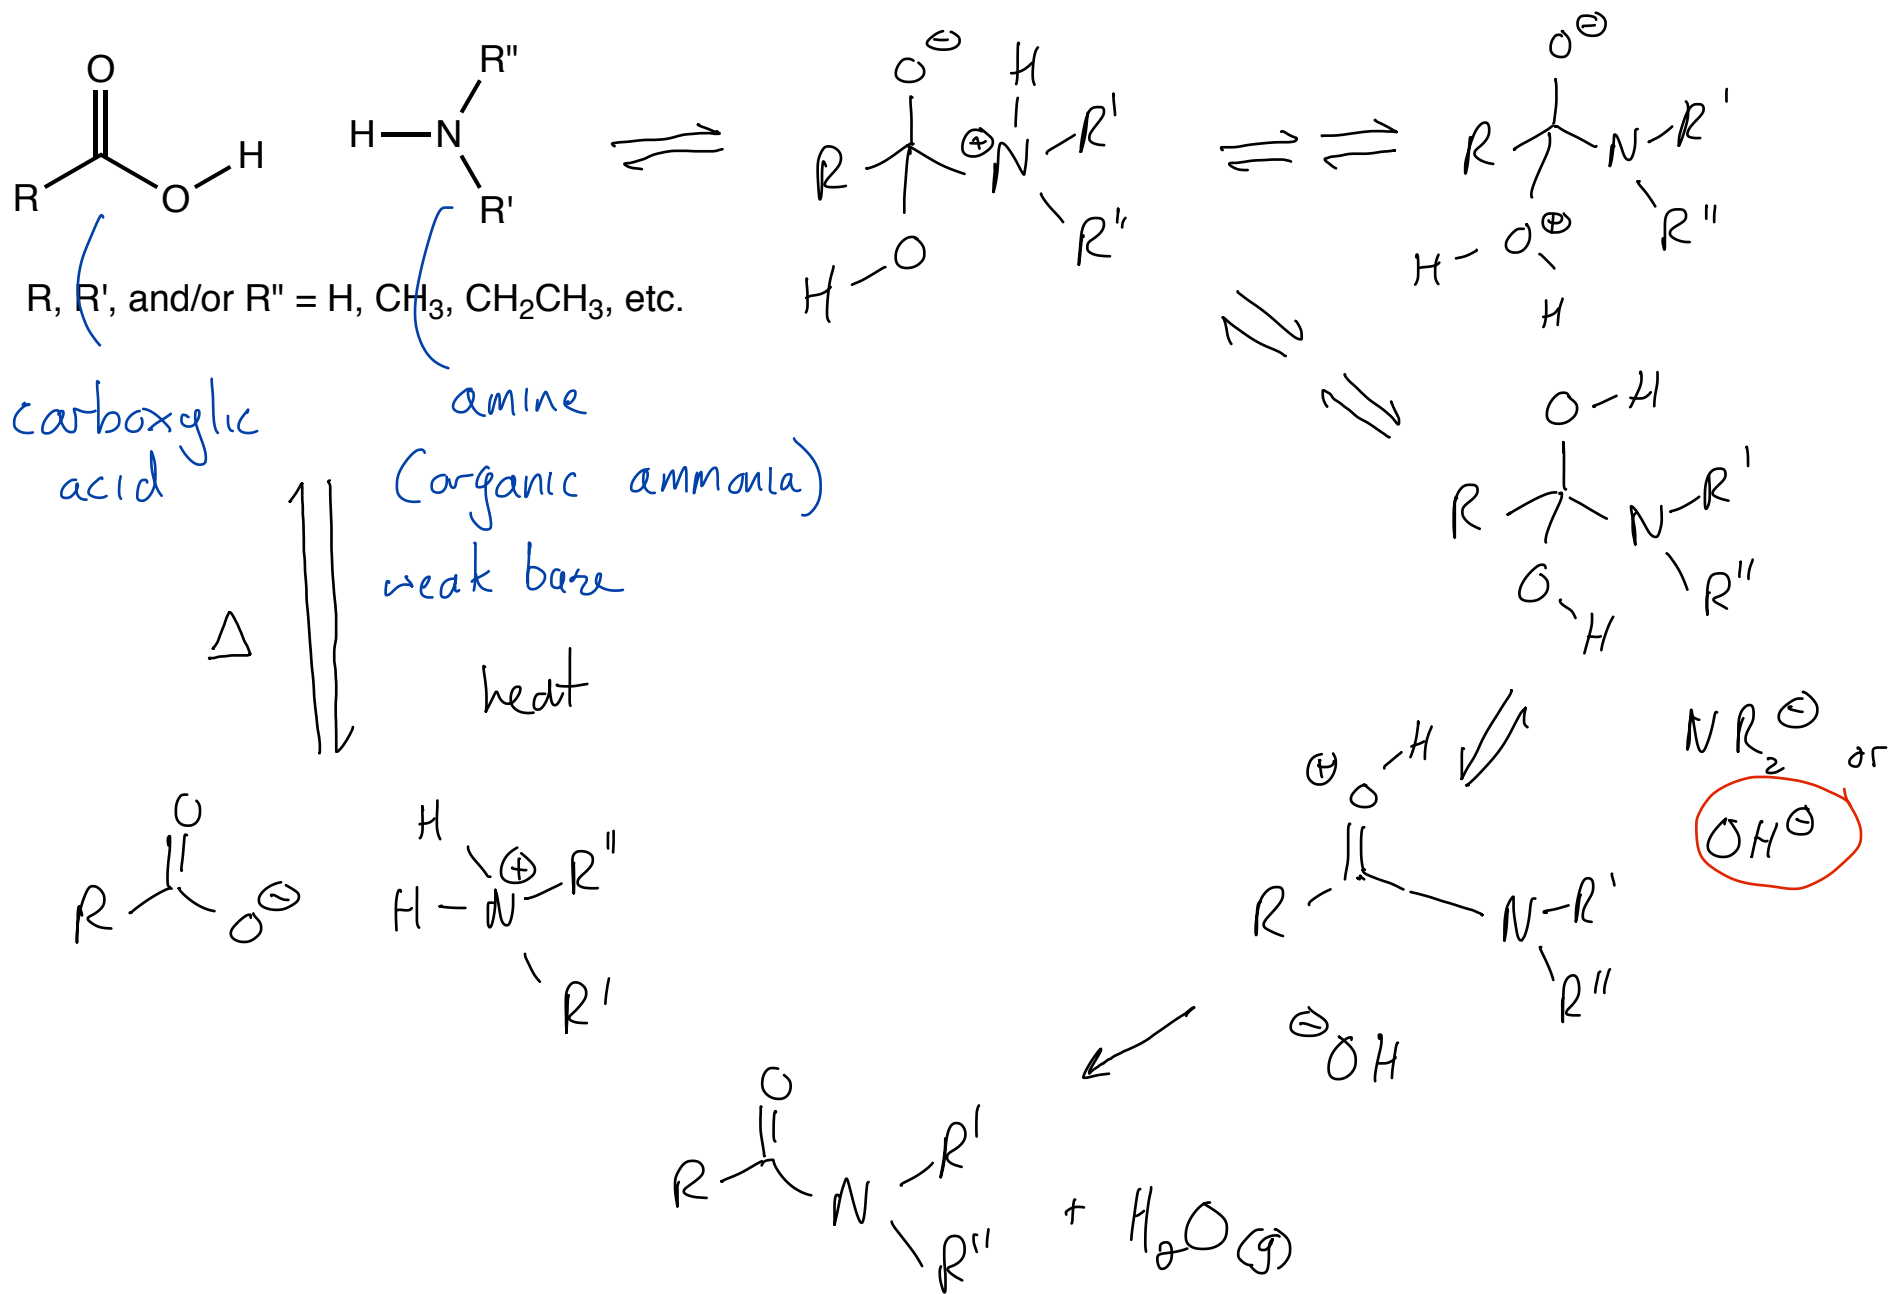 O
R
O
H
H
N
R"
R'
R, R', and/or R" = H, CH₃, CH₂CH₃, etc.
carboxylic
acid
amine
(organic ammonia)
weak base
Δ
heat
O ⊖
H
R
⊕ N
R'
R"
H O
O ⊖
R
N
R'
R"
H O ⊕
H
O H
R
N
R'
R"
O
H
NR₂ ⊖ or
OH ⊖
⊕ O H
R
N
R'
R"
⊖ OH
O
R
O ⊖
H
H N ⊕
R"
R'
O
R
N
R'
R"
+ H₂O(g)